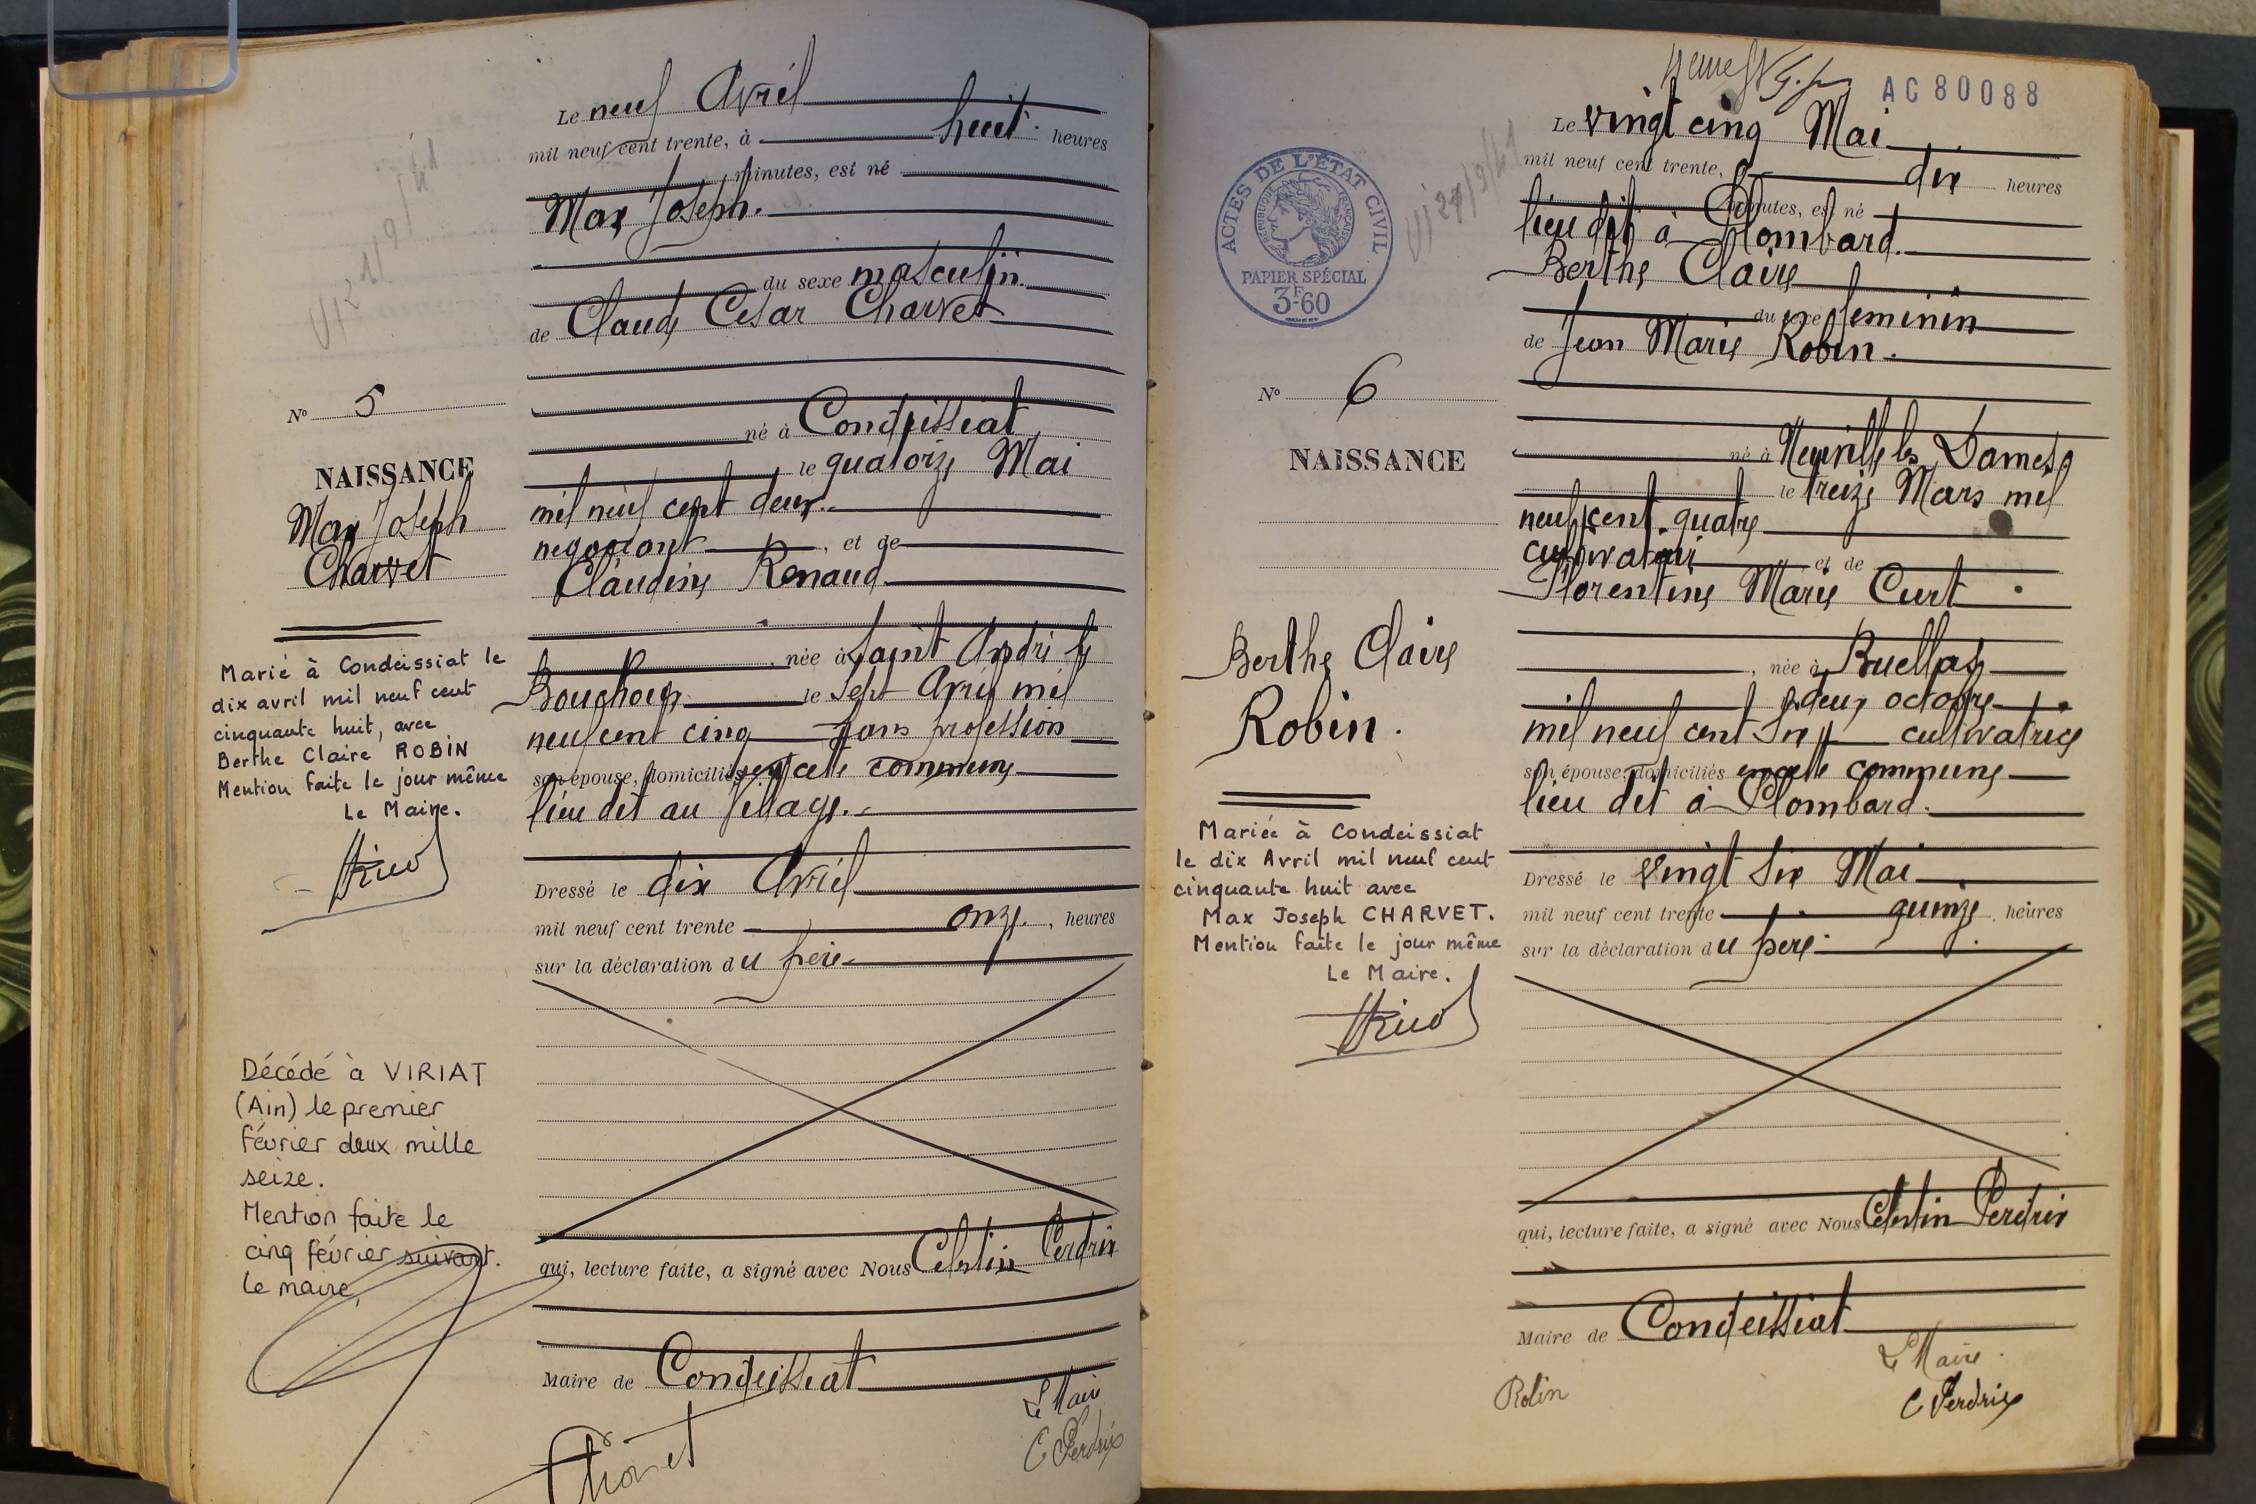 Le neuf Avril
mil neuf cent trente, à huit heures
minutes, est né
Max Joseph.
du sexe masculin
de Claude César Charvet
né à Condeissiat
le quatorze Mai
mil neuf cent deux.
négociant, et de
Claudine Renaud
née à Saint André le
Bouchoux le sept Avril mil
neuf cent cinq sans profession
son épouse, domiciliés en cette commune
lieu dit au Village.
Dressé le dix Avril
mil neuf cent trente onze, heures
sur la déclaration du père
qui, lecture faite, a signé avec Nous Célestin Perdrix
Maire de Condeissiat
Charvet
Le Maire
C Perdrix
No 5
NAISSANCE
Max Joseph
Charvet
Marié à Condeissiat le
dix avril mil neuf cent
cinquante huit, avec
Berthe Claire ROBIN
Mention faite le jour même
Le Maire.
Décédé à VIRIAT
(Ain) le premier
février deux mille
seize.
Mention faite le
cinq février suivant.
Le maire,
AC 80088
Le vingt cinq Mai
mil neuf cent trente, dix heures
minutes, est né
lieu dit à Plombard.
Berthe Claire
du sexe féminin
de Jean Marie Robin.
né à Neuville les Dames
le treize Mars mil
neuf cent quatre
cultivateur et de
Florentine Marie Curt
, née à Buellas
le deux octobre
mil neuf cent six cultivatrice
son épouse, domiciliés en cette commune
lieu dit à Plombard.
Dressé le vingt six Mai
mil neuf cent trente quinze, heures
sur la déclaration du père
qui, lecture faite, a signé avec Nous Célestin Perdrix
Maire de Condeissiat
Robin
Le Maire.
C Perdrix
ACTES DE L'ÉTAT CIVIL
RÉPUBLIQUE FRANÇAISE
PAPIER SPÉCIAL
3F-60
No 6
NAISSANCE
Berthe Claire
Robin.
Mariée à Condeissiat
le dix Avril mil neuf cent
cinquante huit avec
Max Joseph CHARVET.
Mention faite le jour même
Le Maire.